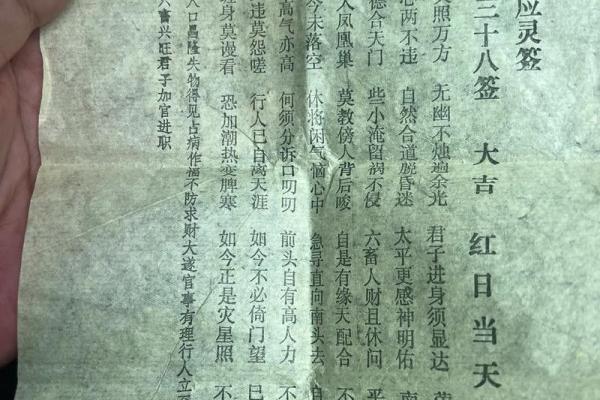 应灵签
三十八签 大吉 红日当天
照万方 无幽不烛遍余光 君子进身须显达
心两不违 自然合道脱昏迷 太平更感神明佑 南
德合天门 些小淹留涡不侵 六畜人财且休问 平
人凤凰巢 莫教傍人背后唆 自是有缘天配合 不
今未落空 休将闲气恼心中 急寻直向南头去 自
高气亦高 何须分诉口叨叨 前头自有高人力 不
违莫怨嗟 行人已自离天涯 如今不必倚门望 巳
身莫谩看 恐加潮热变脾寒 如今正是灾星照 不
人口昌隆失物得见占病作福不防求财大遂官事有理行人立至
兴旺君子加官进职